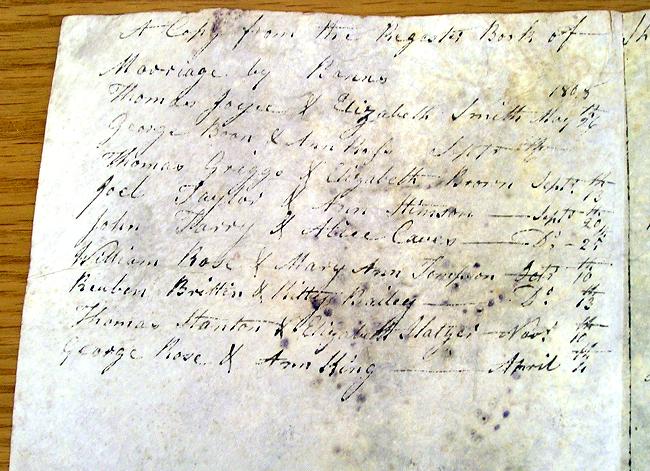 A Copy from the Register Book of Sh
Marriage by Banns
1808
Thomas Joyce & Elizabeth Smith May 26th
George Bron & Ann Ross Sept th
Thomas Griggs & Elizabeth Brown Sept. 13th
Joel Taylor & Ann Stimson — Sept 20th
John Harry & Alice Caves — Do — 27th
William Rose & Mary Ann Tompson Oct. 10th
Reuben Brittin & Kitty Bailey — Do 13th
Thomas Stanton & Elizabeth Slatyer Nov. 10th
George Rose & Ann King — April